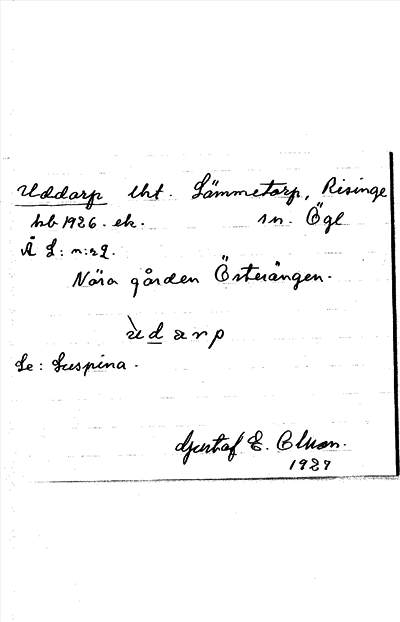 Uddarp lht. Lämmetorp, Risinge
hb 1926. ek. sn. Ögl
Å L: n:r 2.
Nära gården Österängen.
ùdarp
Se: Luspina.
Gustaf E. Olson.
1927